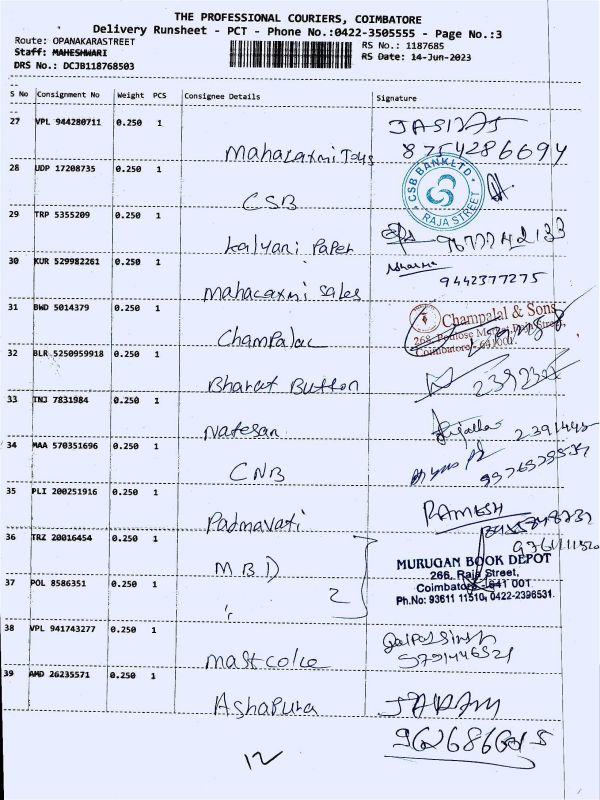 THE PROFESSIONAL COURIERS, COIMBATORE
Delivery Runsheet - PCT - Phone No.:0422-3505555 - Page No.:3
Route: OPANAKARASTREET RS No.: 1187685
Staff: MAHESHWARI RS Date: 14-Jun-2023
DRS No.: DCJB118768503
S No Consignment No Weight PCS Consignee Details Signature
27 VPL 944280711 0.250 1
Mahalaxmi Toys 8754286694
28 UDP 17208735 0.250 1
CSB CSB BANK LTD RAJA STREET
29 TRP 5355209 0.250 1
Kalyani Paper
30 KUR 529982261 0.250 1 Sharma
Mahalaxmi Sales 9442377275
31 BWD 5014379 0.250 1 Champalal & Sons
Champalal Coimbatore - 641001.
32 BLR 5250959918 0.250 1
Bharat Button
33 TNJ 7831984 0.250 1
Natesan
34 MAA 570351696 0.250 1
CNB
35 PLI 200251916 0.250 1 RAMESH
Padmavati
36 TRZ 20016454 0.250 1
M.B.D MURUGAN BOOK DEPOT
266, Raja Street,
37 POL 8586351 0.250 1 Coimbatore - 641 001
" 2 Ph.No: 93611 11510, 0422-2396531.
38 VPL 941743277 0.250 1
39 AMD 26235571 0.250 1
Ashapura
12